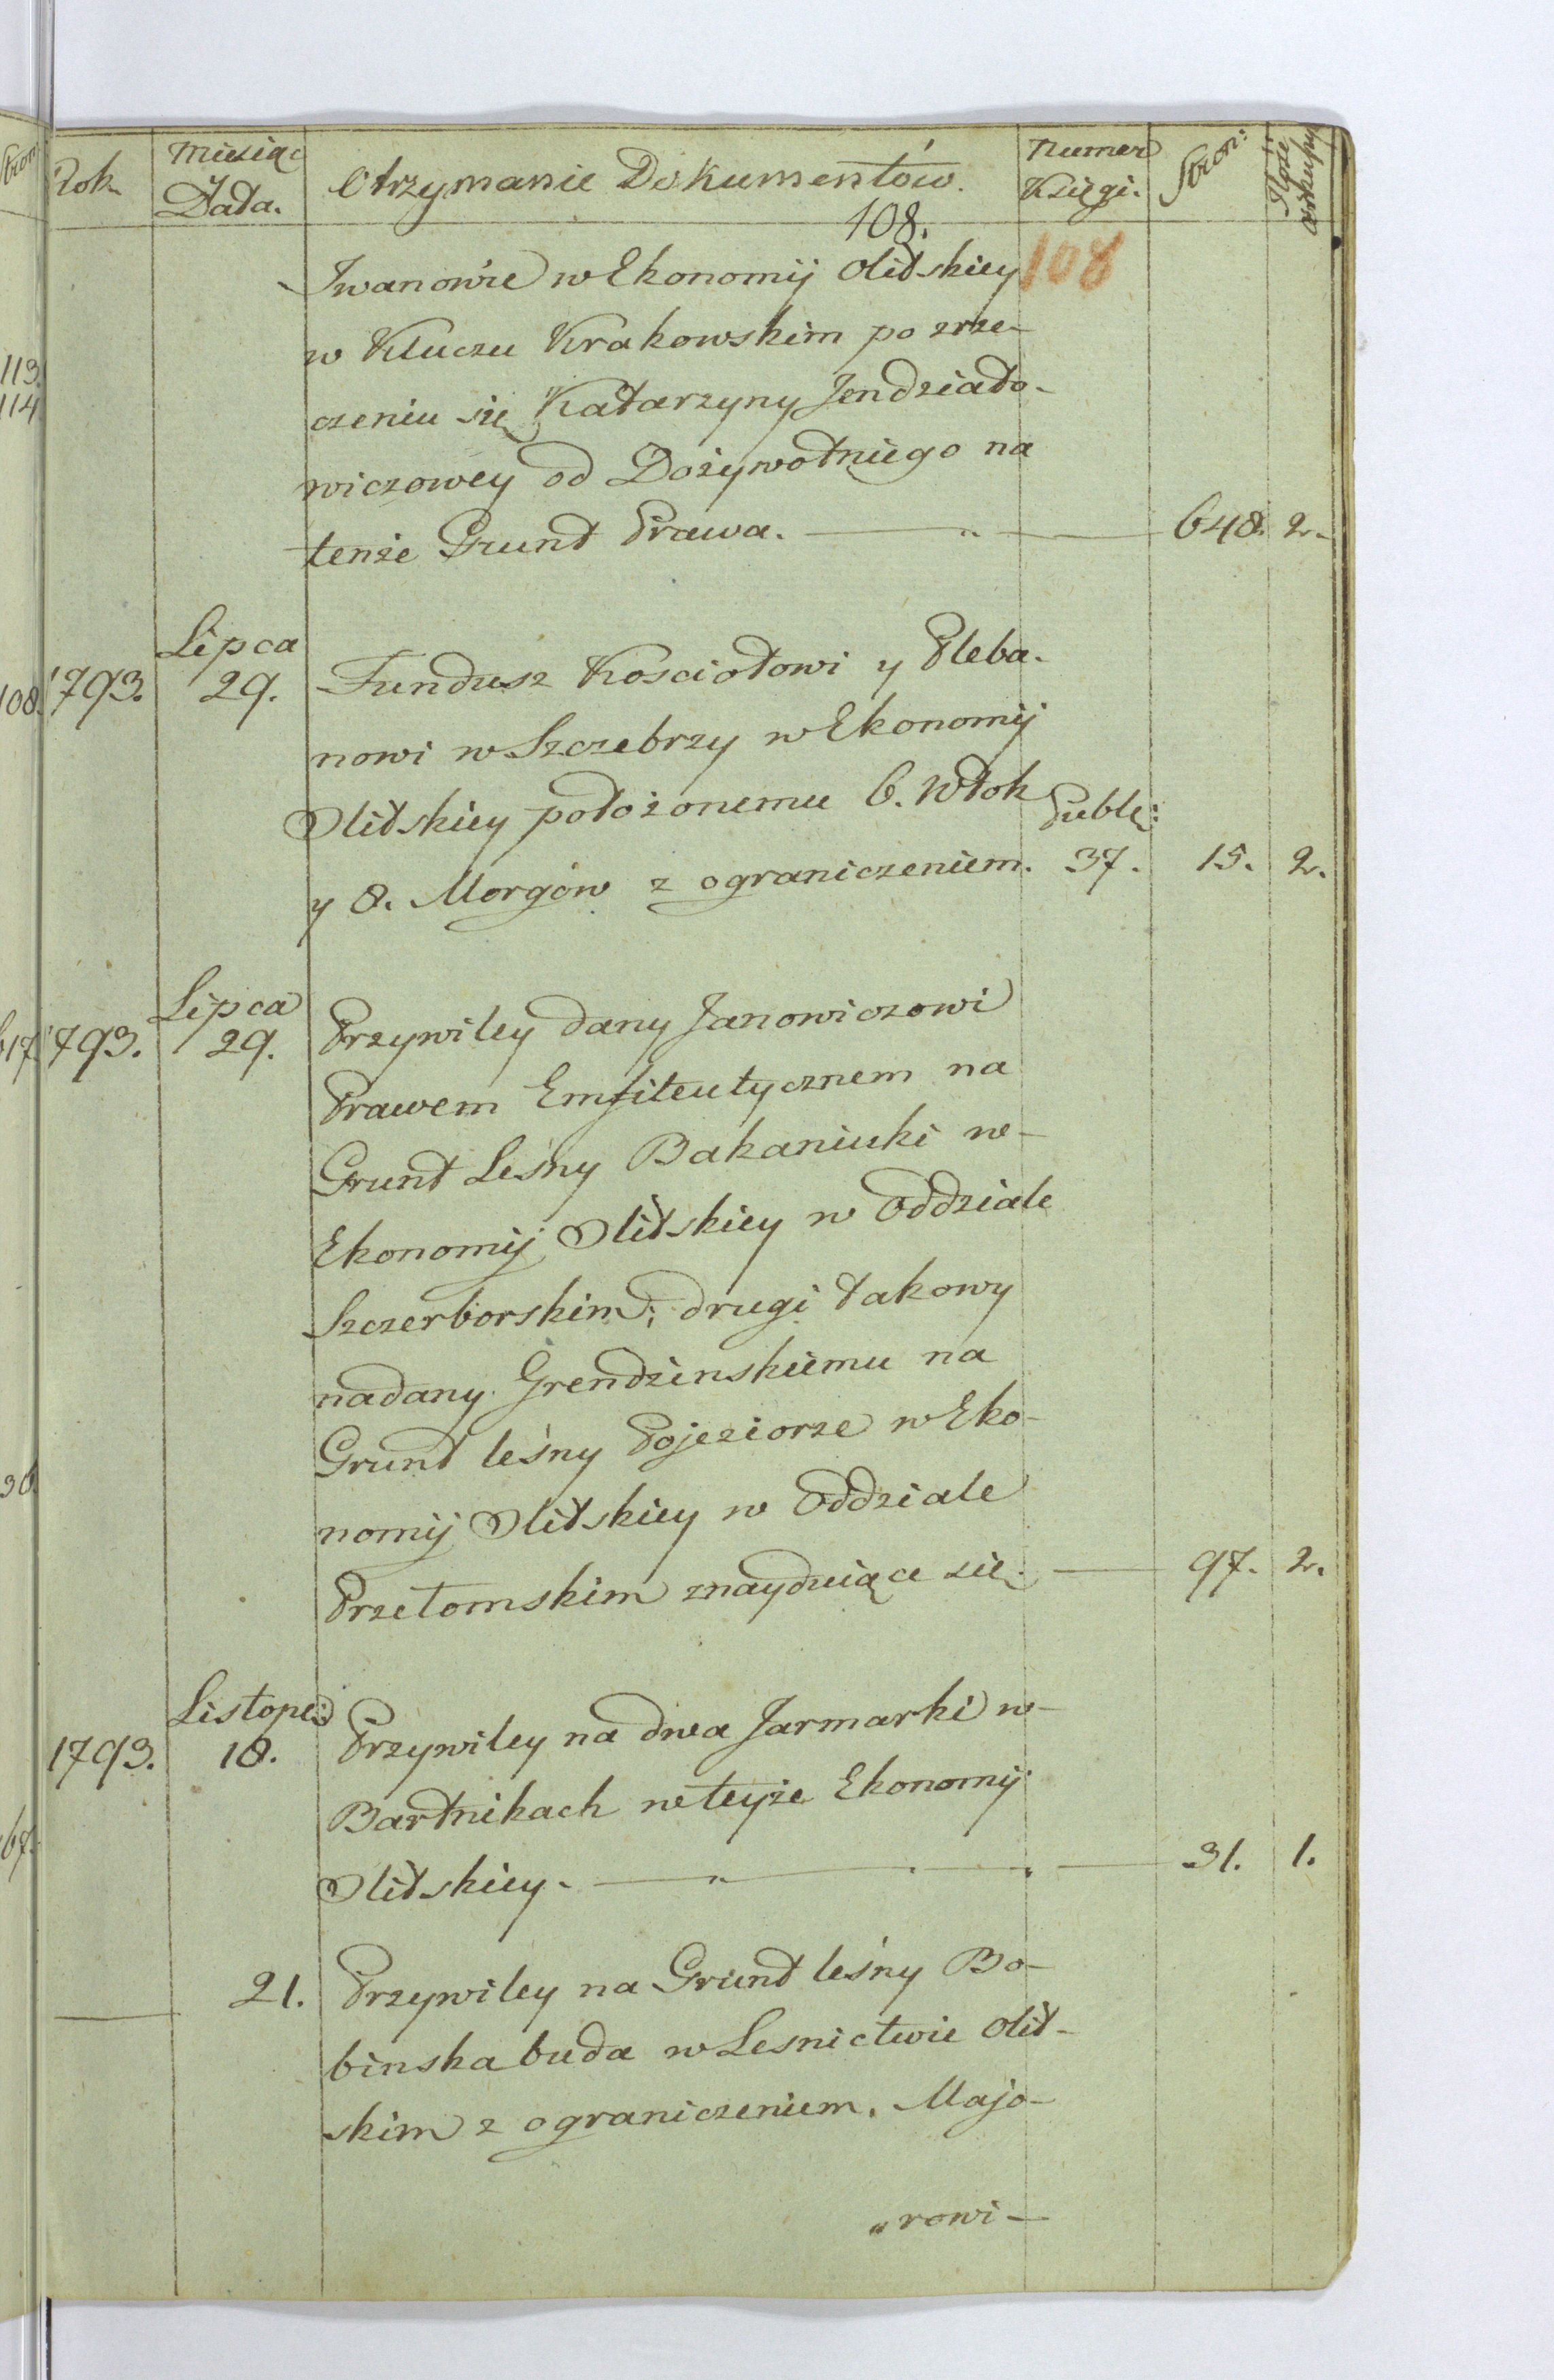 Rok
Miesiąc
Data.
Otrzymanie Dokumentów.
Numer
Księgi.
Stron:
108.
108
Iwanowie w Ekonomij Olitskiey
w Kluczu Krakowskim po zrze-
czeniu się Katarzyny Jendziało-
wiczowey od Dożywotniego na
tenże Grunt Prawa. 648. 2.
1793. Lipca 29. Fundusz Kosciołowi y Pleba-
nowi w Szczebrzy w Ekonomij
Olitskiey położonemu 6. Włok
y 8. Morgów z ograniczeniem. Publ: 37. 15. 2.
1793. Lipca 29. Przywiley dany Janowiczowi
Prawem Emfiteutycznem na
Grunt Leśny Bakaniuki w-
Ekonomij Olitskiey w Oddziale
Szczerborskim; drugi takowy
nadany Grendzinskiemu na
Grunt leśny Pojeziorze w Eko-
nomij Olitskiey w Oddziale
Przełomskim znayduiące się. 97. 2.
1793. Listop: 18. Przywiley na dwa Jarmarki w-
Bartnikach w teyże Ekonomij
Olitskiey. 31. 1.
21. Przywiley na Grunt leśny Bo-
binska buda w Lesnictwie Olit-
skim z ograniczeniem. Majo-
„rowi-